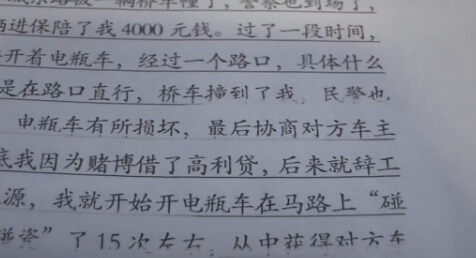 辆轿车撞了，警察也到场了，
俩进保陪了我4000元钱。过了一段时间，
开着电瓶车，经过一个路口，具体什么
是在路口直行，桥车撞到了我，民警也
电瓶车有所损坏，最后协商对方车主
底我因为赌博借了高利贷，后来就辞工
源，我就开始开电瓶车在马路上“碰
碰瓷”了15次左右，从中获得对方车